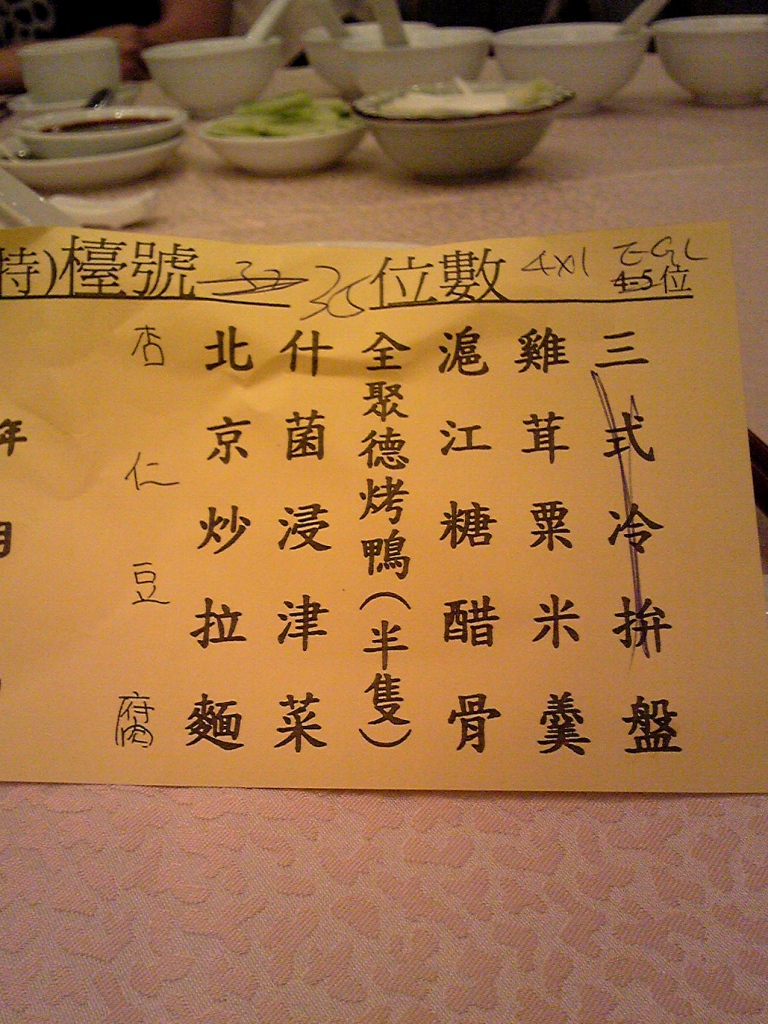 特)檯號 32 35 位數 4×1
4-5位
三式冷拚盤
雞茸粟米羹
滬江糖醋骨
全聚德烤鴨(半隻)
什菌浸津菜
北京炒拉麵
杏仁豆腐
年
月